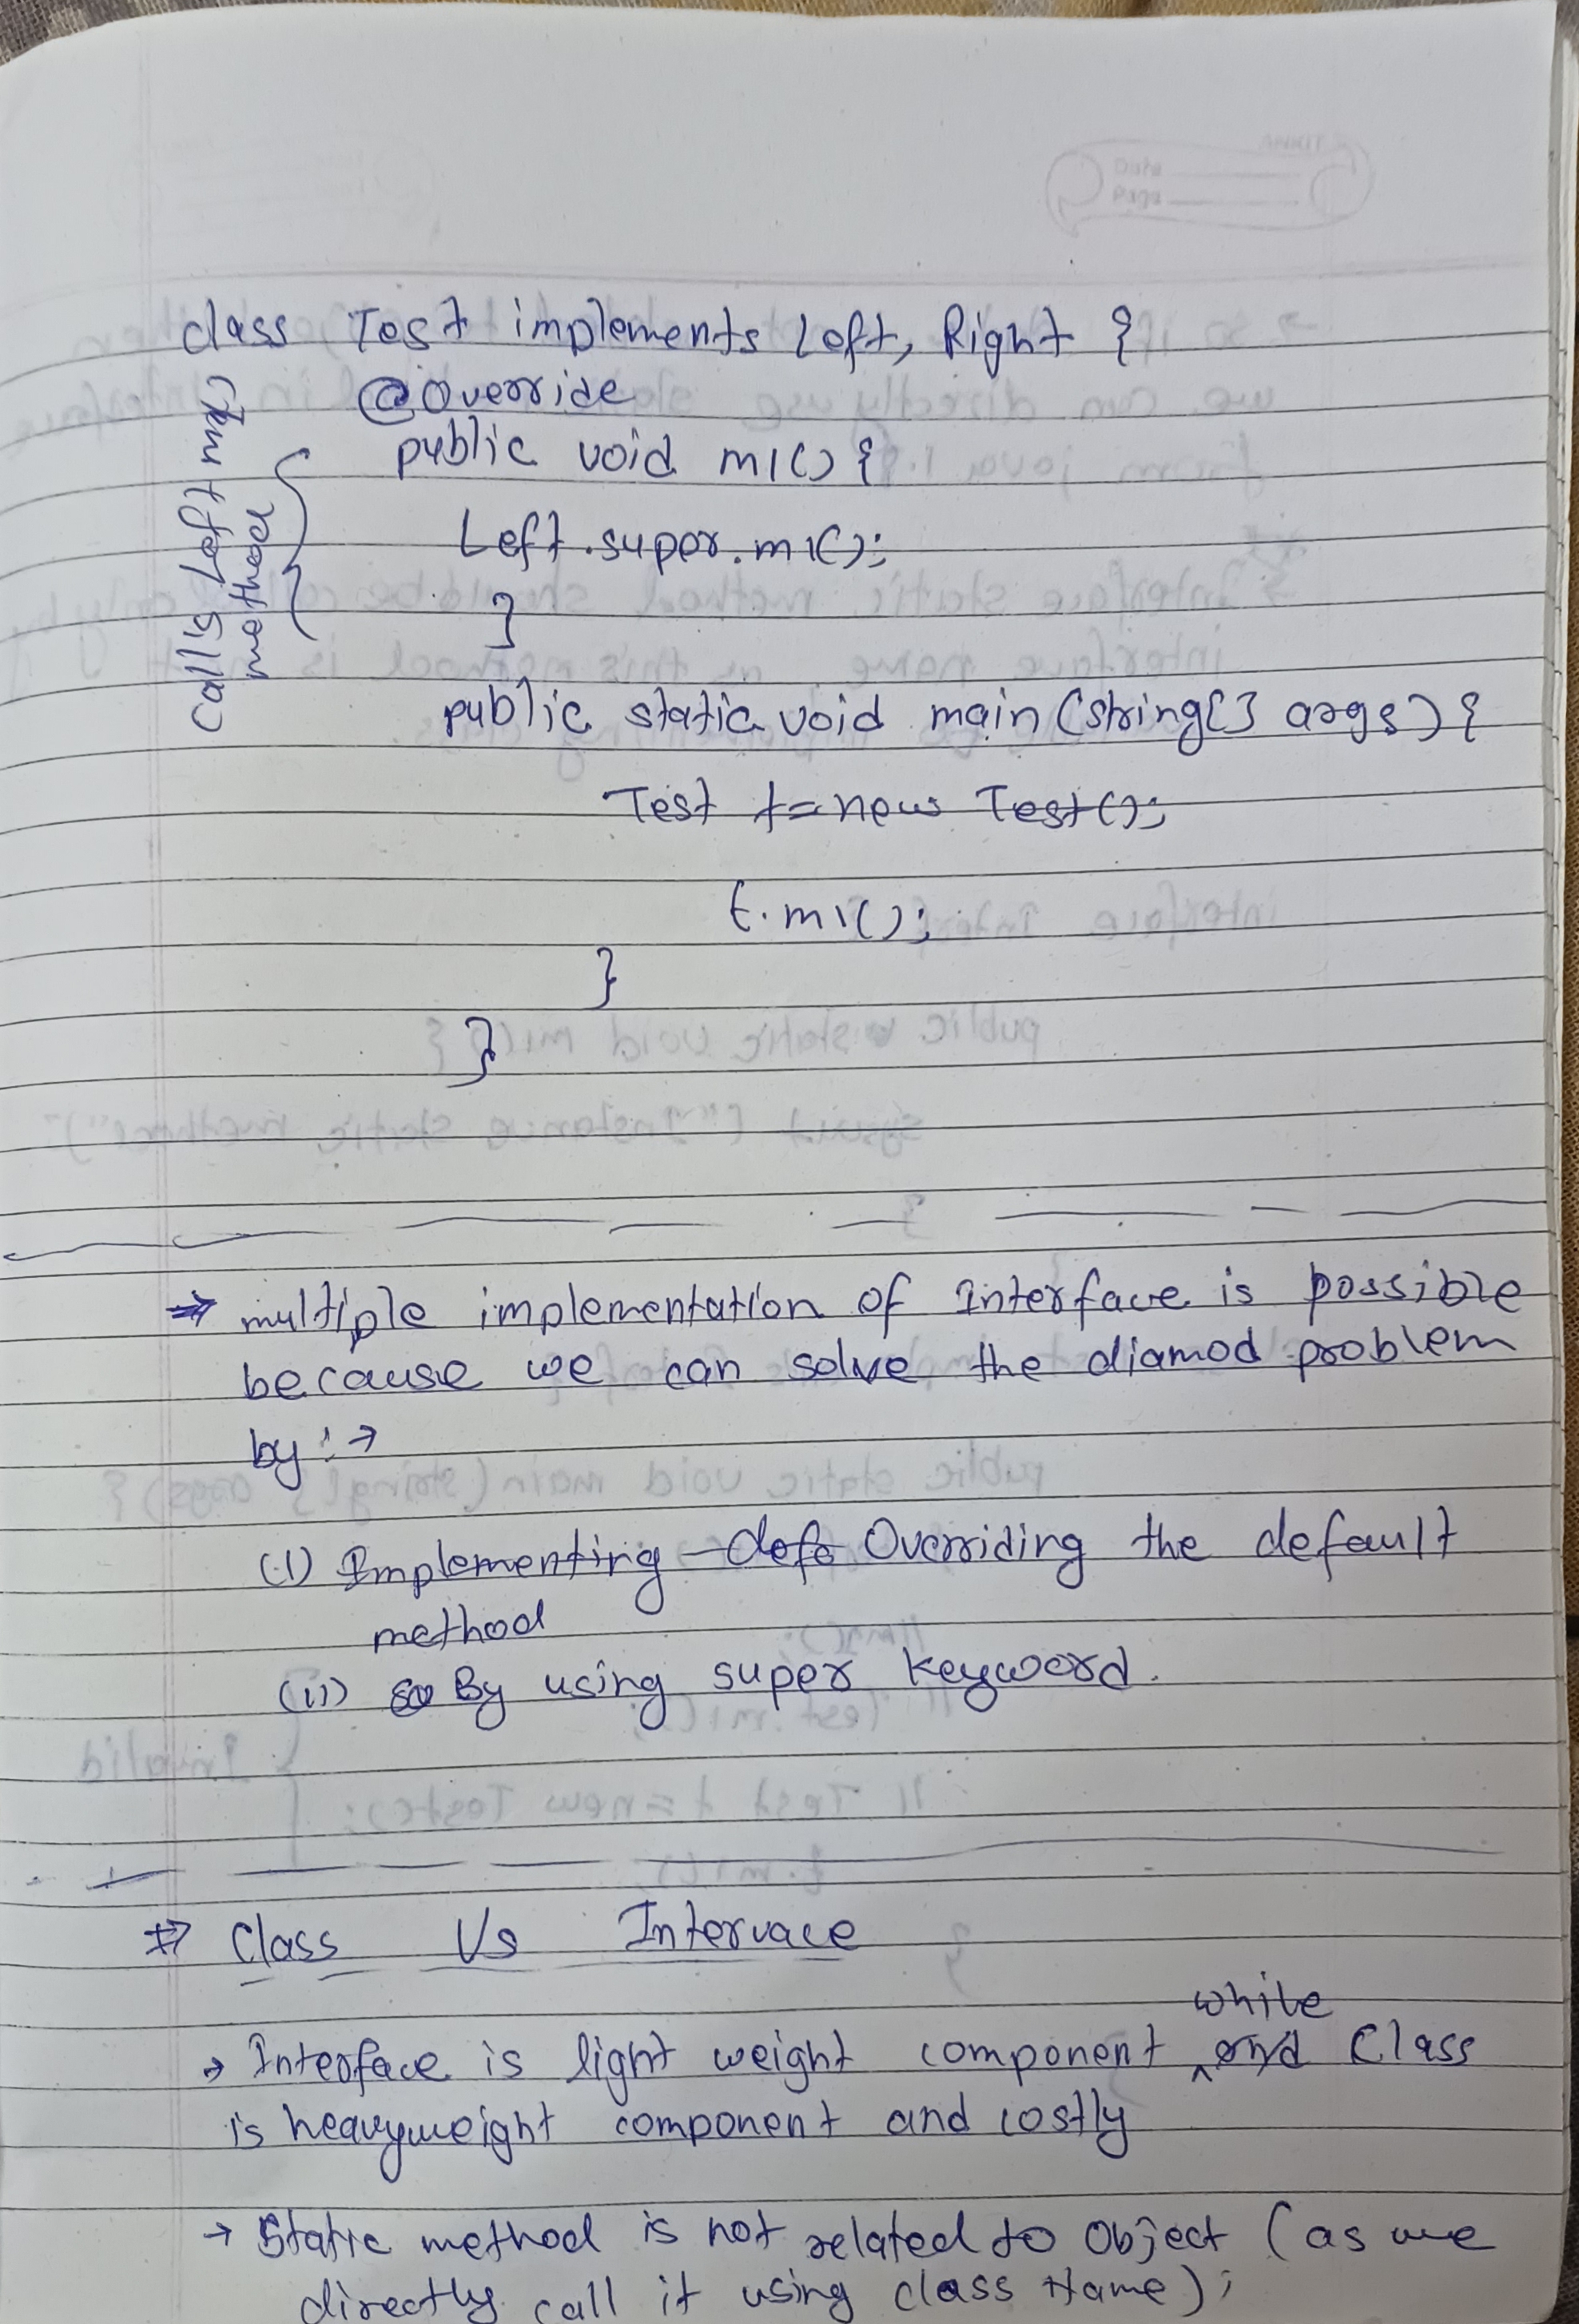 class Test implements Left, Right {
@Override
public void m1() {
Left.super.m1();
}
Calls Left m1()
method
public static void main(string[] args) {
Test t = new Test();
t.m1();
}
}
⇒ multiple implementation of Interface is possible
because we can solve the diamod problem
by :→
(i) Implementing defa Overriding the default
method
(ii) so By using super keyword.
⇒ Class Vs Intervace
while
→ Interface is light weight component and Class
is heavyweight component and costly
→ Static method is not related to Object (as we
directly call it using class Name);